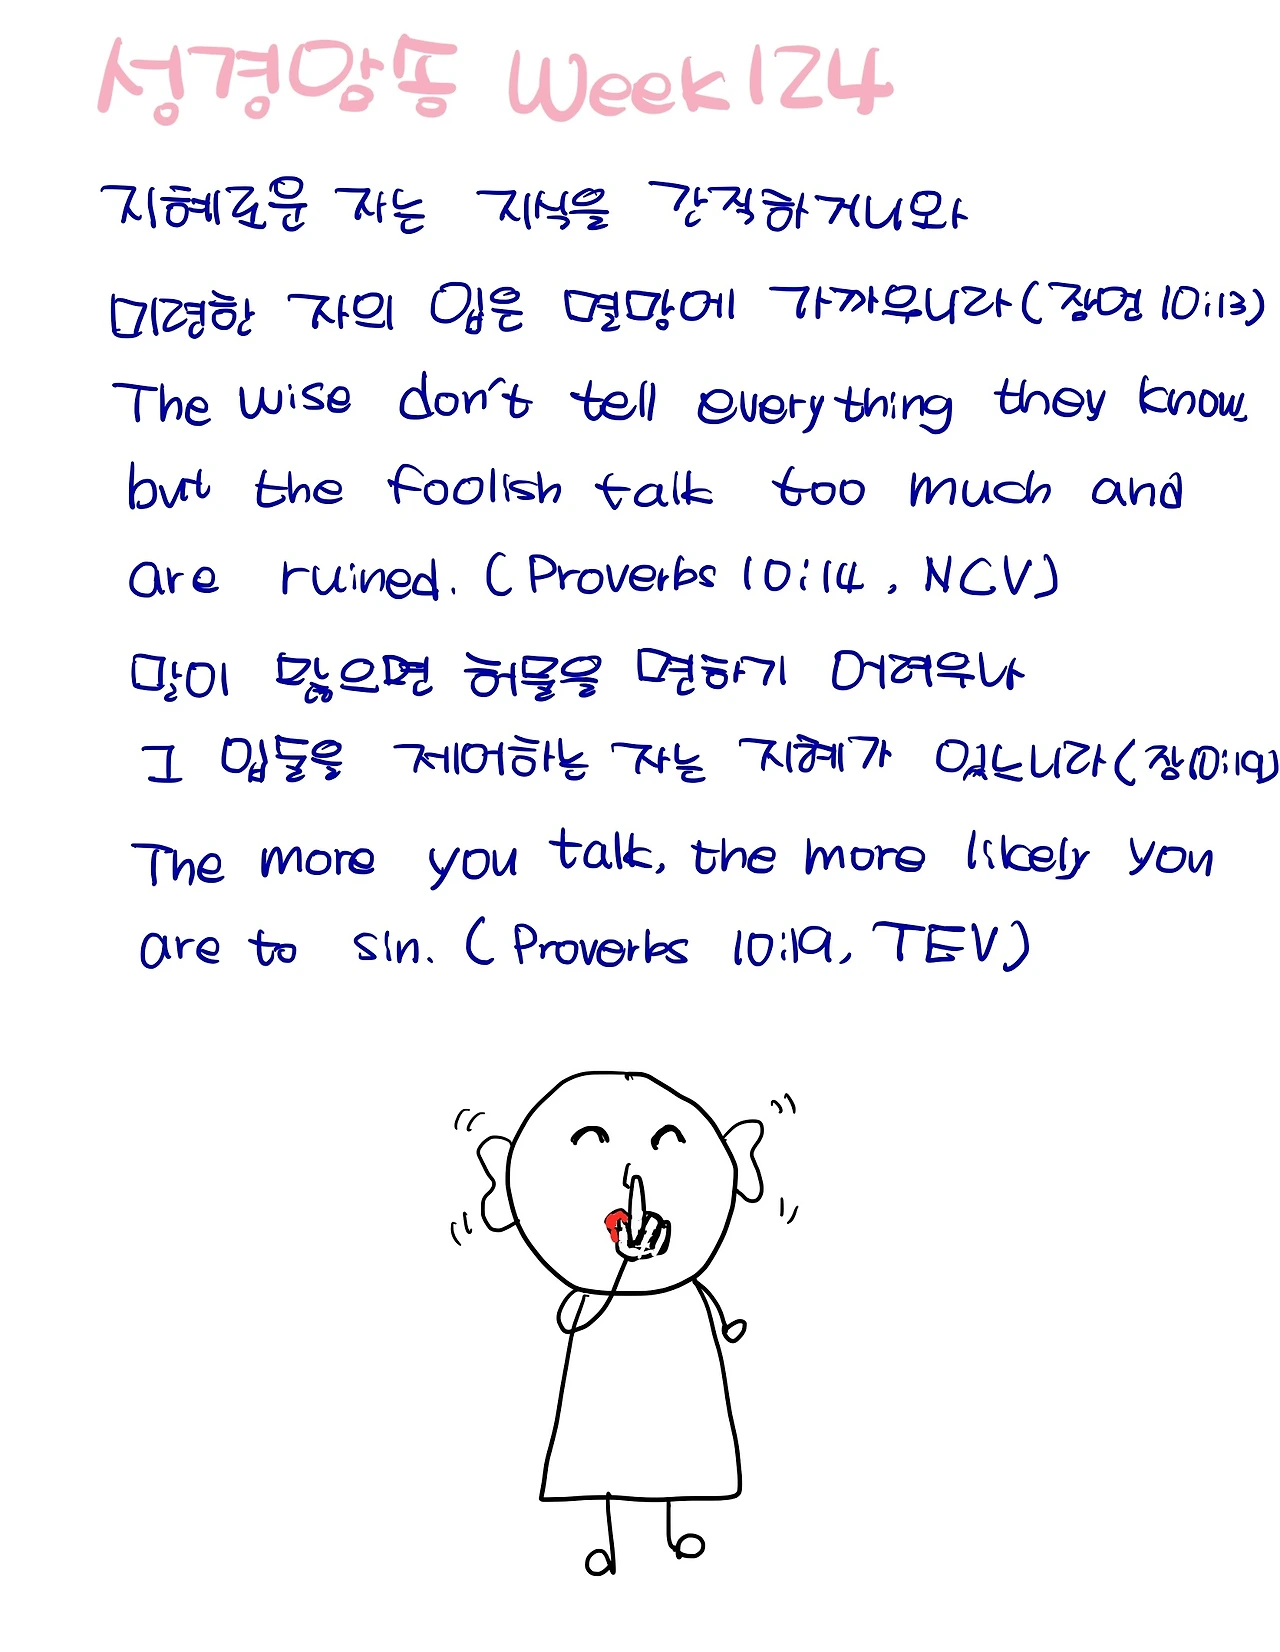 성경암송 Week 124
지혜로운 자는 지식을 간직하거니와
미련한 자의 입은 멸망에 가까우니라 (잠언 10:13)
The wise don't tell everything they know
but the foolish talk too much and
are ruined. (Proverbs 10:14, NCV)
말이 많으면 허물을 면하기 어려우나
그 입술을 제어하는 자는 지혜가 있느니라 (잠10:19)
The more you talk, the more likely you
are to sin. (Proverbs 10:19, TEV)